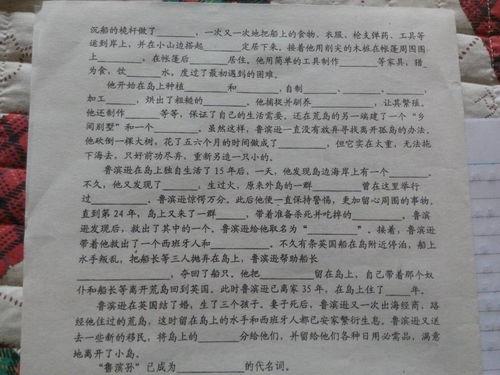 沉船的桅杆做了________,一次又一次地把船上的食物、衣服、枪支弹药、工具等
运到岸上,并在小山边搭起________定居下来,接着他用削尖的木桩在帐篷周围围
上________,在帐篷后________居住,他用简单的工具制作________等家具,猎
为食,饮________水,度过了最初遇到的困难。
他开始在岛上种植________和________,自制________、________、________,
加工________,烘出了粗糙的________。他捕捉并驯养________,让其繁殖。
他还制作________等等,保证了自己的生活需要。还在荒岛的另一端建了一个“乡
间别墅”和一个________。虽然这样,鲁滨逊一直没有放弃寻找离开孤岛的办法。
他砍倒一棵大树,花了五六个月的时间做成了________,但它实在太重,无法拖
下海去,只好前功尽弃,重新另造一只小的。
鲁滨逊在岛上独自生活了15年后,一天,他发现岛边海岸上有一个________。
不久,他又发现了________,生过火,原来外岛的一群________曾在这里举行
过________。鲁滨逊惊愕万分。此后他便一直保持警惕,更加留心周围的事物。
直到第24年,岛上又来了一群________,带着准备杀死并吃掉的________。鲁滨
逊发现后,救出了其中的一个。鲁滨逊给他取名为“________”。接着,鲁滨逊
带着他救出了一个西班牙人和________。不久有条英国船在岛附近停泊,船上
水手叛乱,把船长等三人抛弃在岛上,鲁滨逊帮助船长
________,夺回了船只。他把________留在岛上,自己带着那个奴
仆和船长等离开荒岛回到英国。此时鲁滨逊已离家35年,在岛上住了____年。
鲁滨逊在英国结了婚,生了三个孩子。妻子死后,鲁滨逊又一次出海经商,路
经他住过的荒岛,这时留在岛上的水手和西班牙人都已安家繁衍生息。鲁滨逊又送
去一些新的移民,将岛上的________分给他们,并留给他们各种日用必需品,满意
地离开了小岛。
“鲁滨孙”已成为________的代名词。